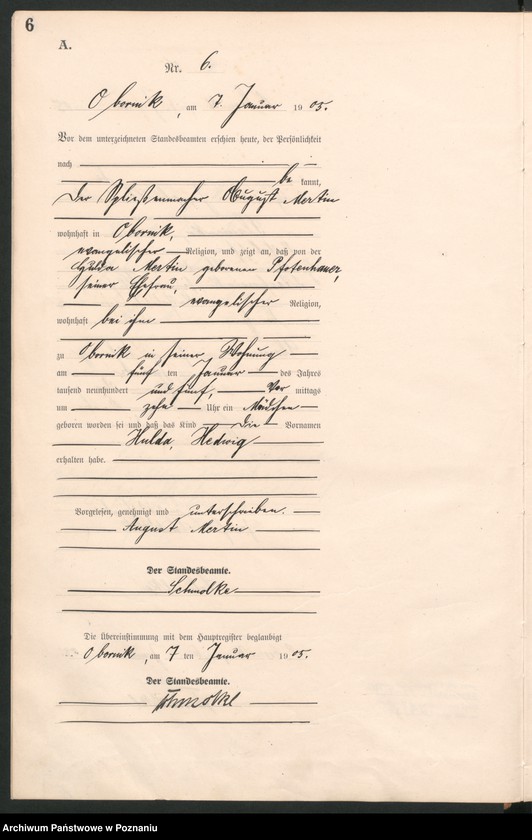 6
A.
Nr. 6.
Obornik, am 7. Januar 1905.
Vor dem unterzeichneten Standesbeamten erschien heute, der Persönlichkeit
nach
be kannt,
der August Mertin
wohnhaft in Obornik,
evangelischer Religion, und zeigt an, daß von der
Hulda Mertin geborenen Pfotenhauer,
seiner Ehefrau,
evangelischer Religion,
wohnhaft bei ihm
zu Obornik in seiner Wohnung
am fünf ten Januar des Jahres
tausend neunhundert und fünf, Vor mittags
um zehn Uhr ein Mädchen
geboren worden sei und daß das Kind die Vornamen
Hulda, Hedwig
erhalten habe.
Vorgelesen, genehmigt und unterschrieben.
August Mertin
Der Standesbeamte.
Schmolke
Die Übereinstimmung mit dem Hauptregister beglaubigt
Obornik, am 7 ten Januar 1905.
Der Standesbeamte.
Schmolke
Archiwum Państwowe w Poznaniu